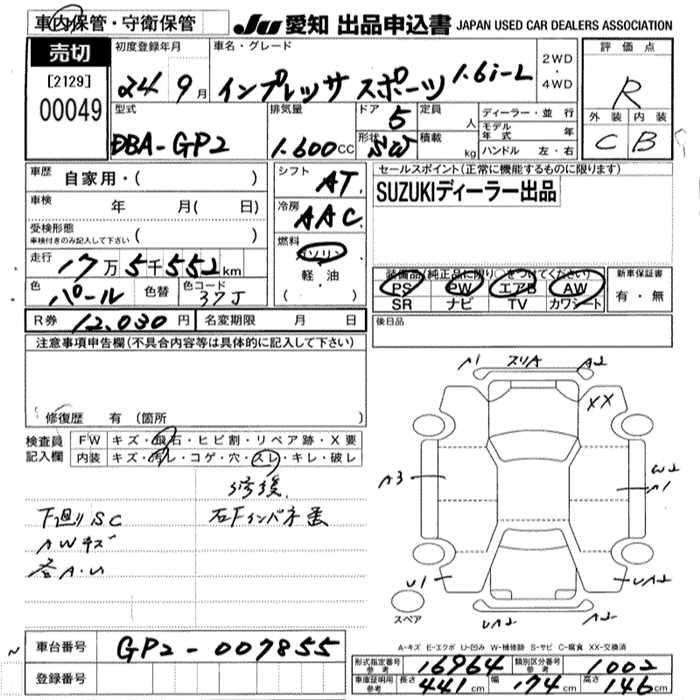 車内保管・守衛保管
JU 愛知 出品申込書 JAPAN USED CAR DEALERS ASSOCIATION
売切
[2129]
00049
初度登録年月
24 9月
車名・グレード
インプレッサ スポーツ 1.6i-L
2WD
・
4WD
評価点
R
外装 内装
C B
型式
DBA-GP2
排気量
1.600CC
ドア 5
形状 SW
定員 人
積載 kg
ディーラー・並行
モデル年式 年
ハンドル 左・右
車歴 自家用・( )
車検 年 月( 日)
受検形態
車検付きのみ記入して下さい ( )
走行 17万5千552km
色 パール 色替 色コード 37J
シフト AT
冷房 AAC
燃料
ガソリン
軽・油
( )
セールスポイント(正常に機能するものに限ります)
SUZUKIディーラー出品
装備品(純正品に限り○をつけてください)
PS PW エアB AW
SR ナビ TV カワシート
新車保証書
有・無
R券 12,030円 名変期限 月 日
後日品
注意事項申告欄(不具合内容等は具体的に記入して下さい)
修復歴 有 (箇所 )
検査員
記入欄
FW キズ・飛石・ヒビ割・リペア跡・X要
内装 キズ・汚レ・コゲ・穴・スレ・キレ・破レ
修後
下廻りSC 右Fインパネ歪
AWキズ
各A.U
A1 スリA A2
XX
A3
W2
A1
U1
UA2
UA2 A2
スペア
A-キズ E-エクボ U-凹み W-補修跡 S-サビ C-腐食 XX-交換済
車台番号 GP2-007855
登録番号
形式指定番号 参考 16964 類別区分番号 参考 1002
車庫証明用 参考 長さ 441cm 幅 174cm 高さ 146cm